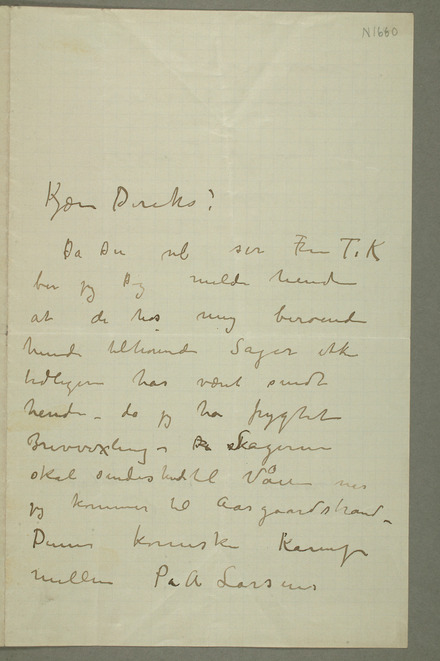 N1660
Kjære Diriks!
Da Du vel ser Fru T. K
ber jeg Dig melde hende
at de hos mig beroende
hende tilhørende Sager ikke
tidligere har vært sendt
hende – da jeg har frygtet
Brevvexling –
skal sendes til Våren når
jeg kommer til Aasgaardstrand –
Denne komiske Kamp
mellem P. A Larsens